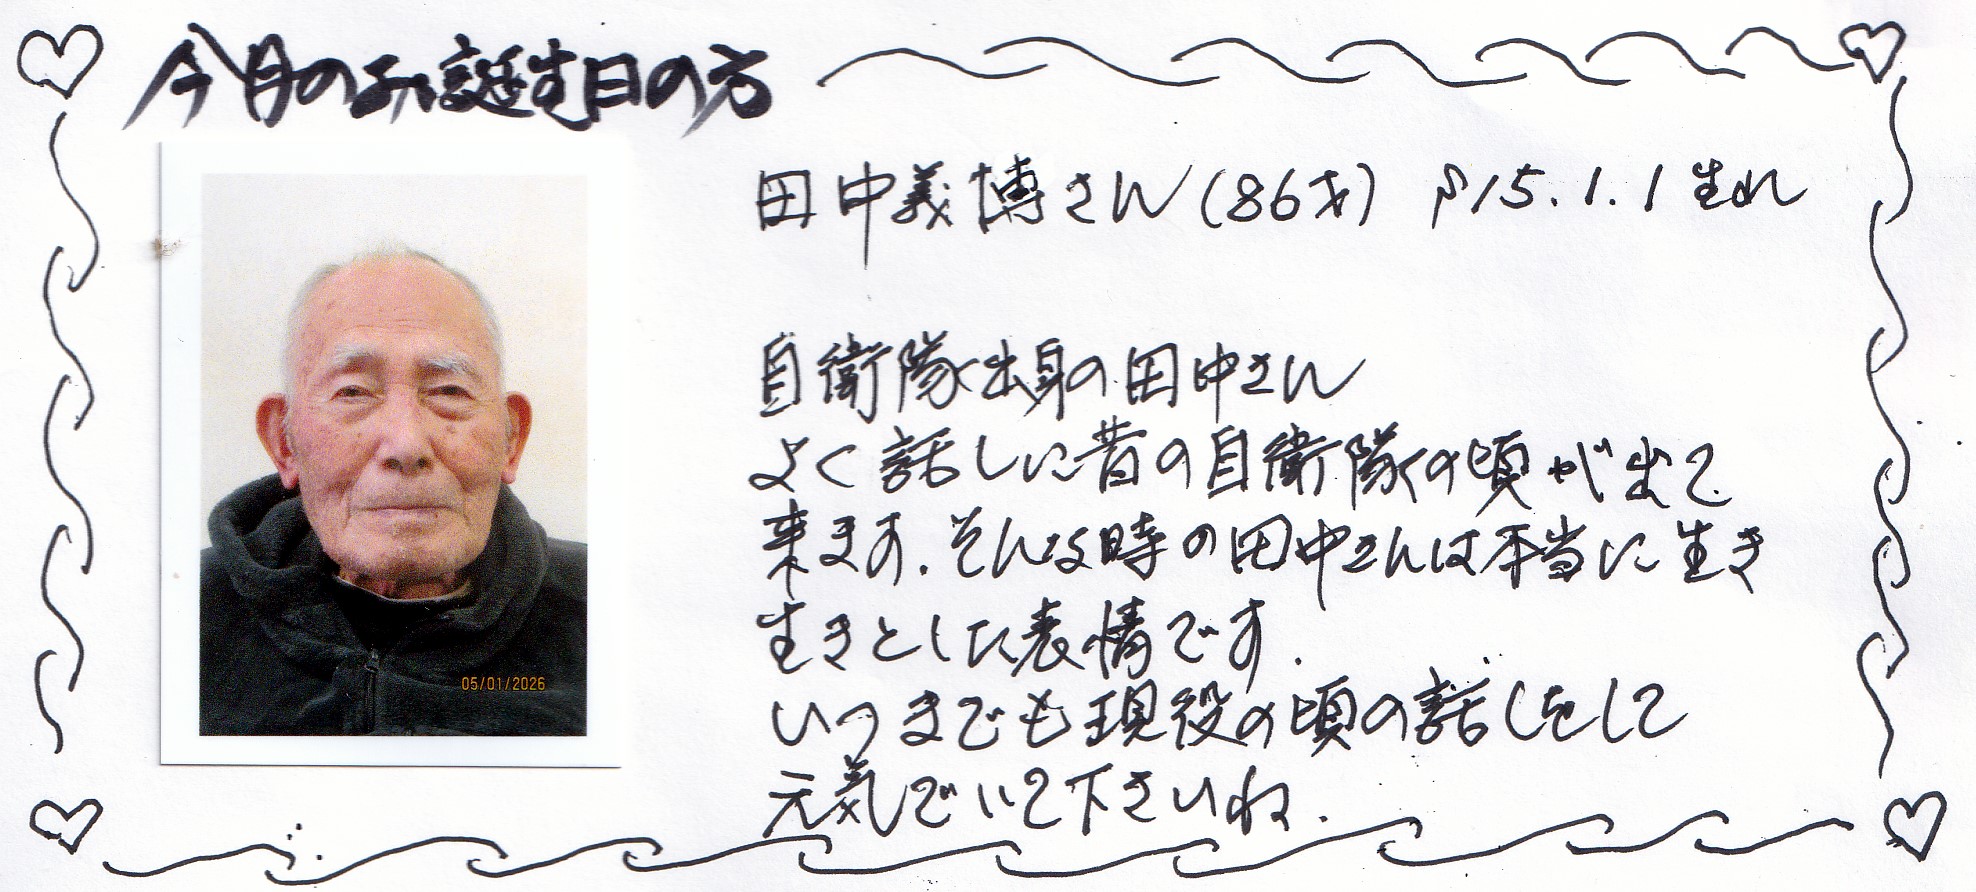 今月のお誕生日の方
田中義博さん(86才) S15.1.1生れ
自衛隊出身の田中さん
よく話しに昔の自衛隊の頃が出て
来ます.そんな時の田中さんは本当に生き
生きとした表情です.
いつまでも現役の頃の話しをして
元気でいて下さいね.
05/01/2026